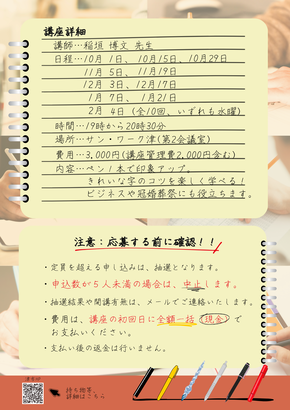 講座詳細
講師…稲垣 博文 先生
日程…10月 1日、10月15日、10月29日
11月 5日、11月19日
12月 3日、12月17日
1月 7日、1月21日
2月 4日（全10回、いずれも水曜）
時間…19時から20時30分
場所…サン・ワーク津(第2会議室)
費用…3,000円(講座管理費2,000円含む)
内容…ペン1本で印象アップ。
きれいな字のコツを楽しく学べる！
ビジネスや冠婚葬祭にも役立ちます。
注意：応募する前に確認！！
・定員を超える申し込みは、抽選となります。
・申込数が5人未満の場合は、中止します。
・抽選結果や開講有無は、メールでご連絡いたします。
・費用は、講座の初回日に全額一括(現金)で
お支払いください。
・支払い後の返金は行いません。
持ち物等、
詳細はこちら